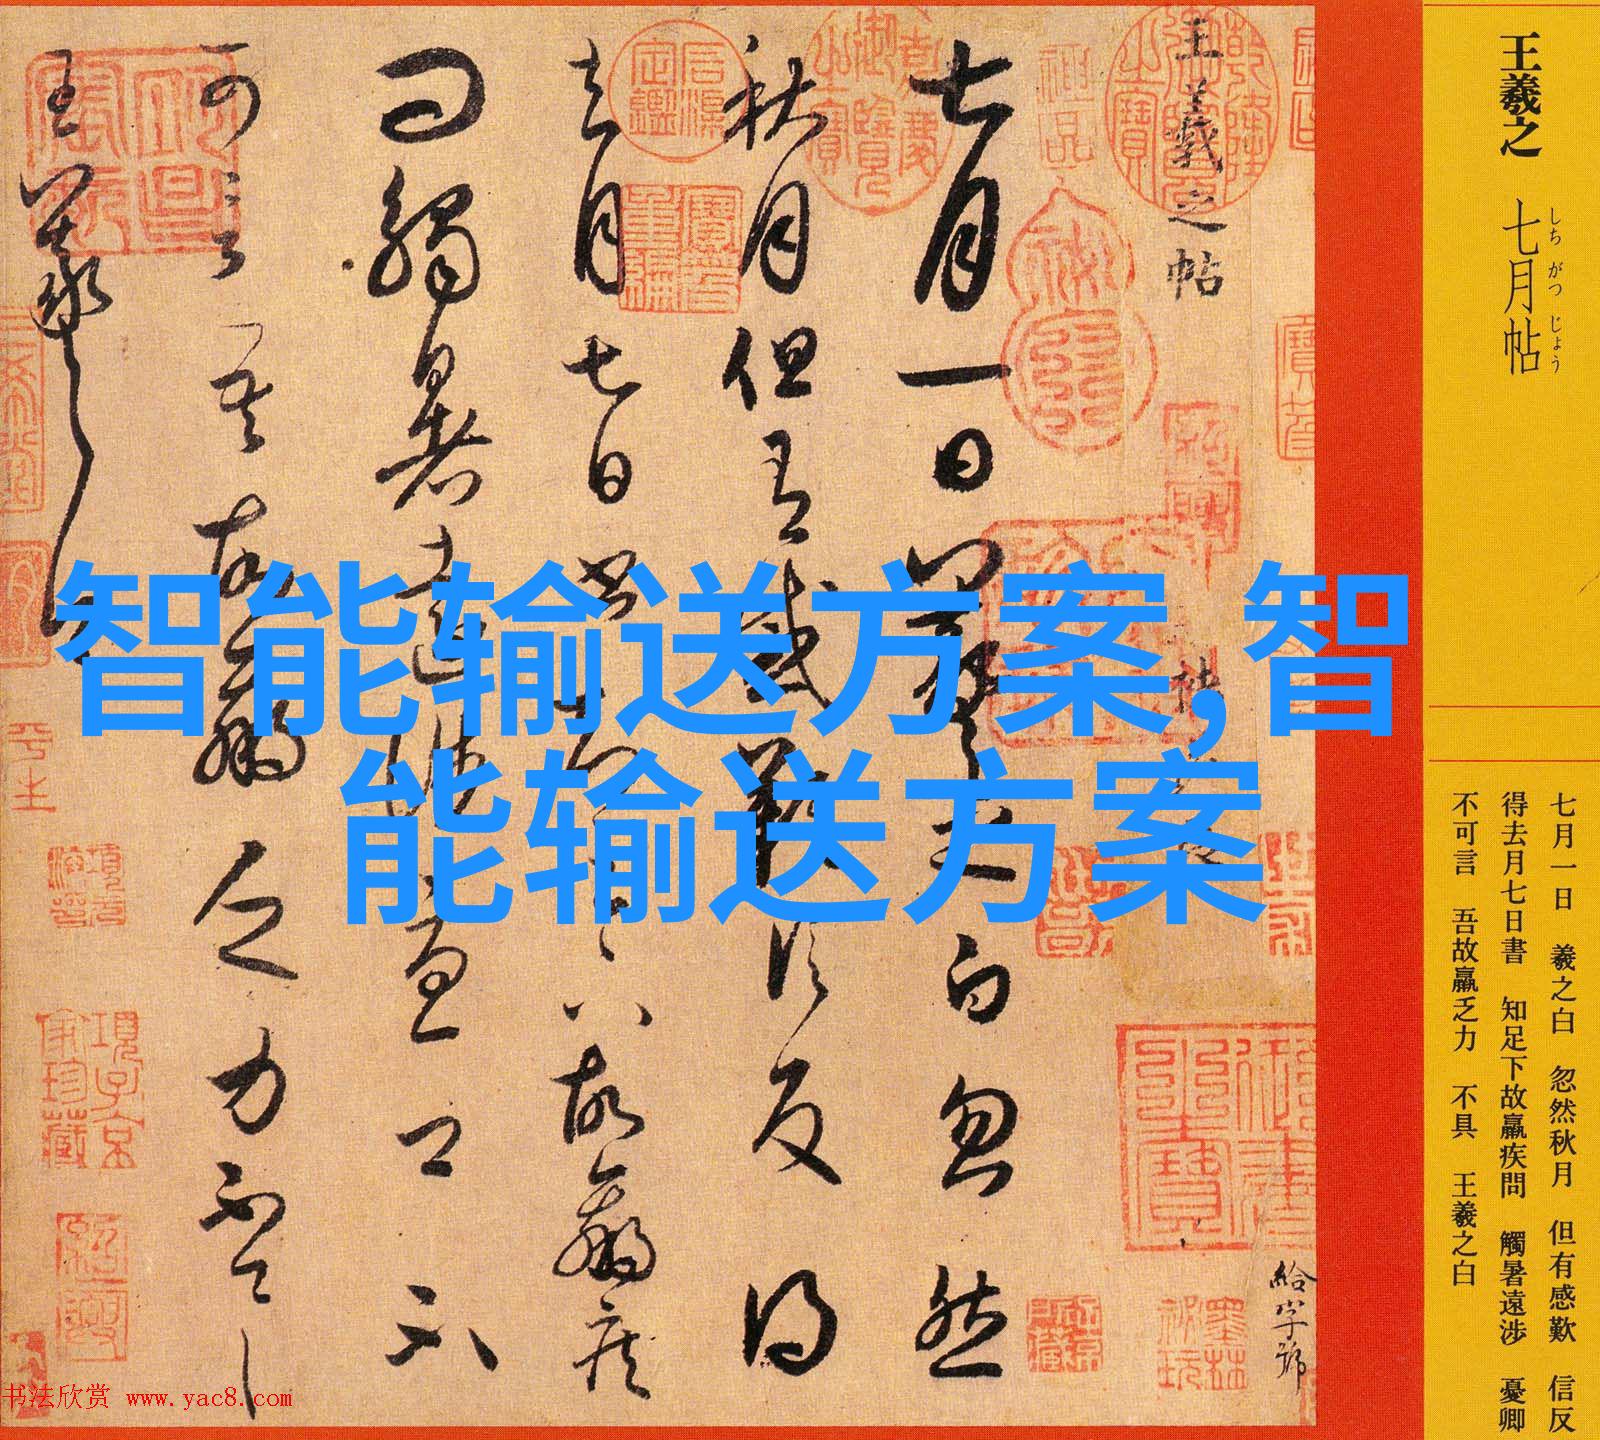 王羲之 七月帖
しち がつ じょう
七月一日 羲之白 忽然秋月 但有感歎 信反
得去月七日書 知足下故羸疾問 觸暑遠涉 憂卿
不可言 吾故羸乏力 不具 王羲之白
王羲之帖
給字號
七月一日羲之白忽然
秋月但有感歎信反得
去月七日書知足下故羸疾
問觸暑遠涉憂卿不
可言吾故羸乏力不具
王羲之白
乾隆御覽之寶
嘉慶御覽之寶
神品
石渠定鑑
寶笈重編
項子京家珍藏
智能输送方案,智
能输送方案
书法欣赏 www.yac8.com